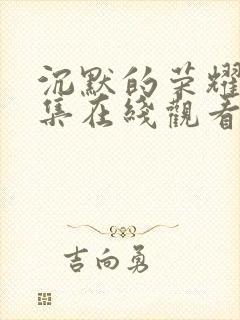 沉默的荣耀
集在綫觀看
吉向勇